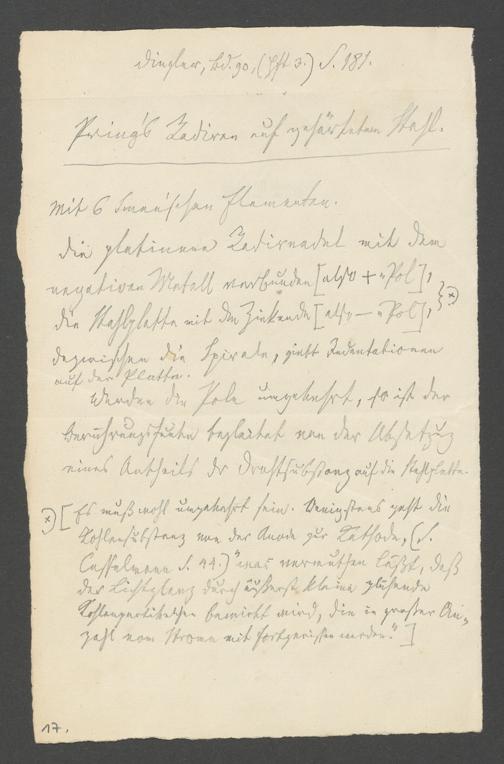 Dingler, Bd. 90, (Hft 3.) S. 181.
Pring's Radiren auf gehärtetem Stahl.
Mit 6 Smee'schen Elementen.
Die platinene Radirnadel mit dem
negativen Metall verbunden [also + Pol],
die Stahlplatte mit dem Zinkende [also – Pol],
dazwischen die Spirale, giebt Indentationen
auf der Platte.
Werden die Pole umgekehrt, so ist der
Berührungsfunken begleitet von der Absetzung
eines Antheils der Drahtsubstanz auf die Stahlplatte.
x) [Es muß wohl umgekehrt sein. Wenigstens geht die
Kohlensubstanz von der Anode zur Kathode, (S.
Casselmann S. 44.) "was vermuthen läßt, daß
der Lichtglanz durch äußerst kleine glühende
Kohlenpartikelchen bewirkt wird, die in großer An-
zahl vom Strome mit fortgerissen werden." ]
17.